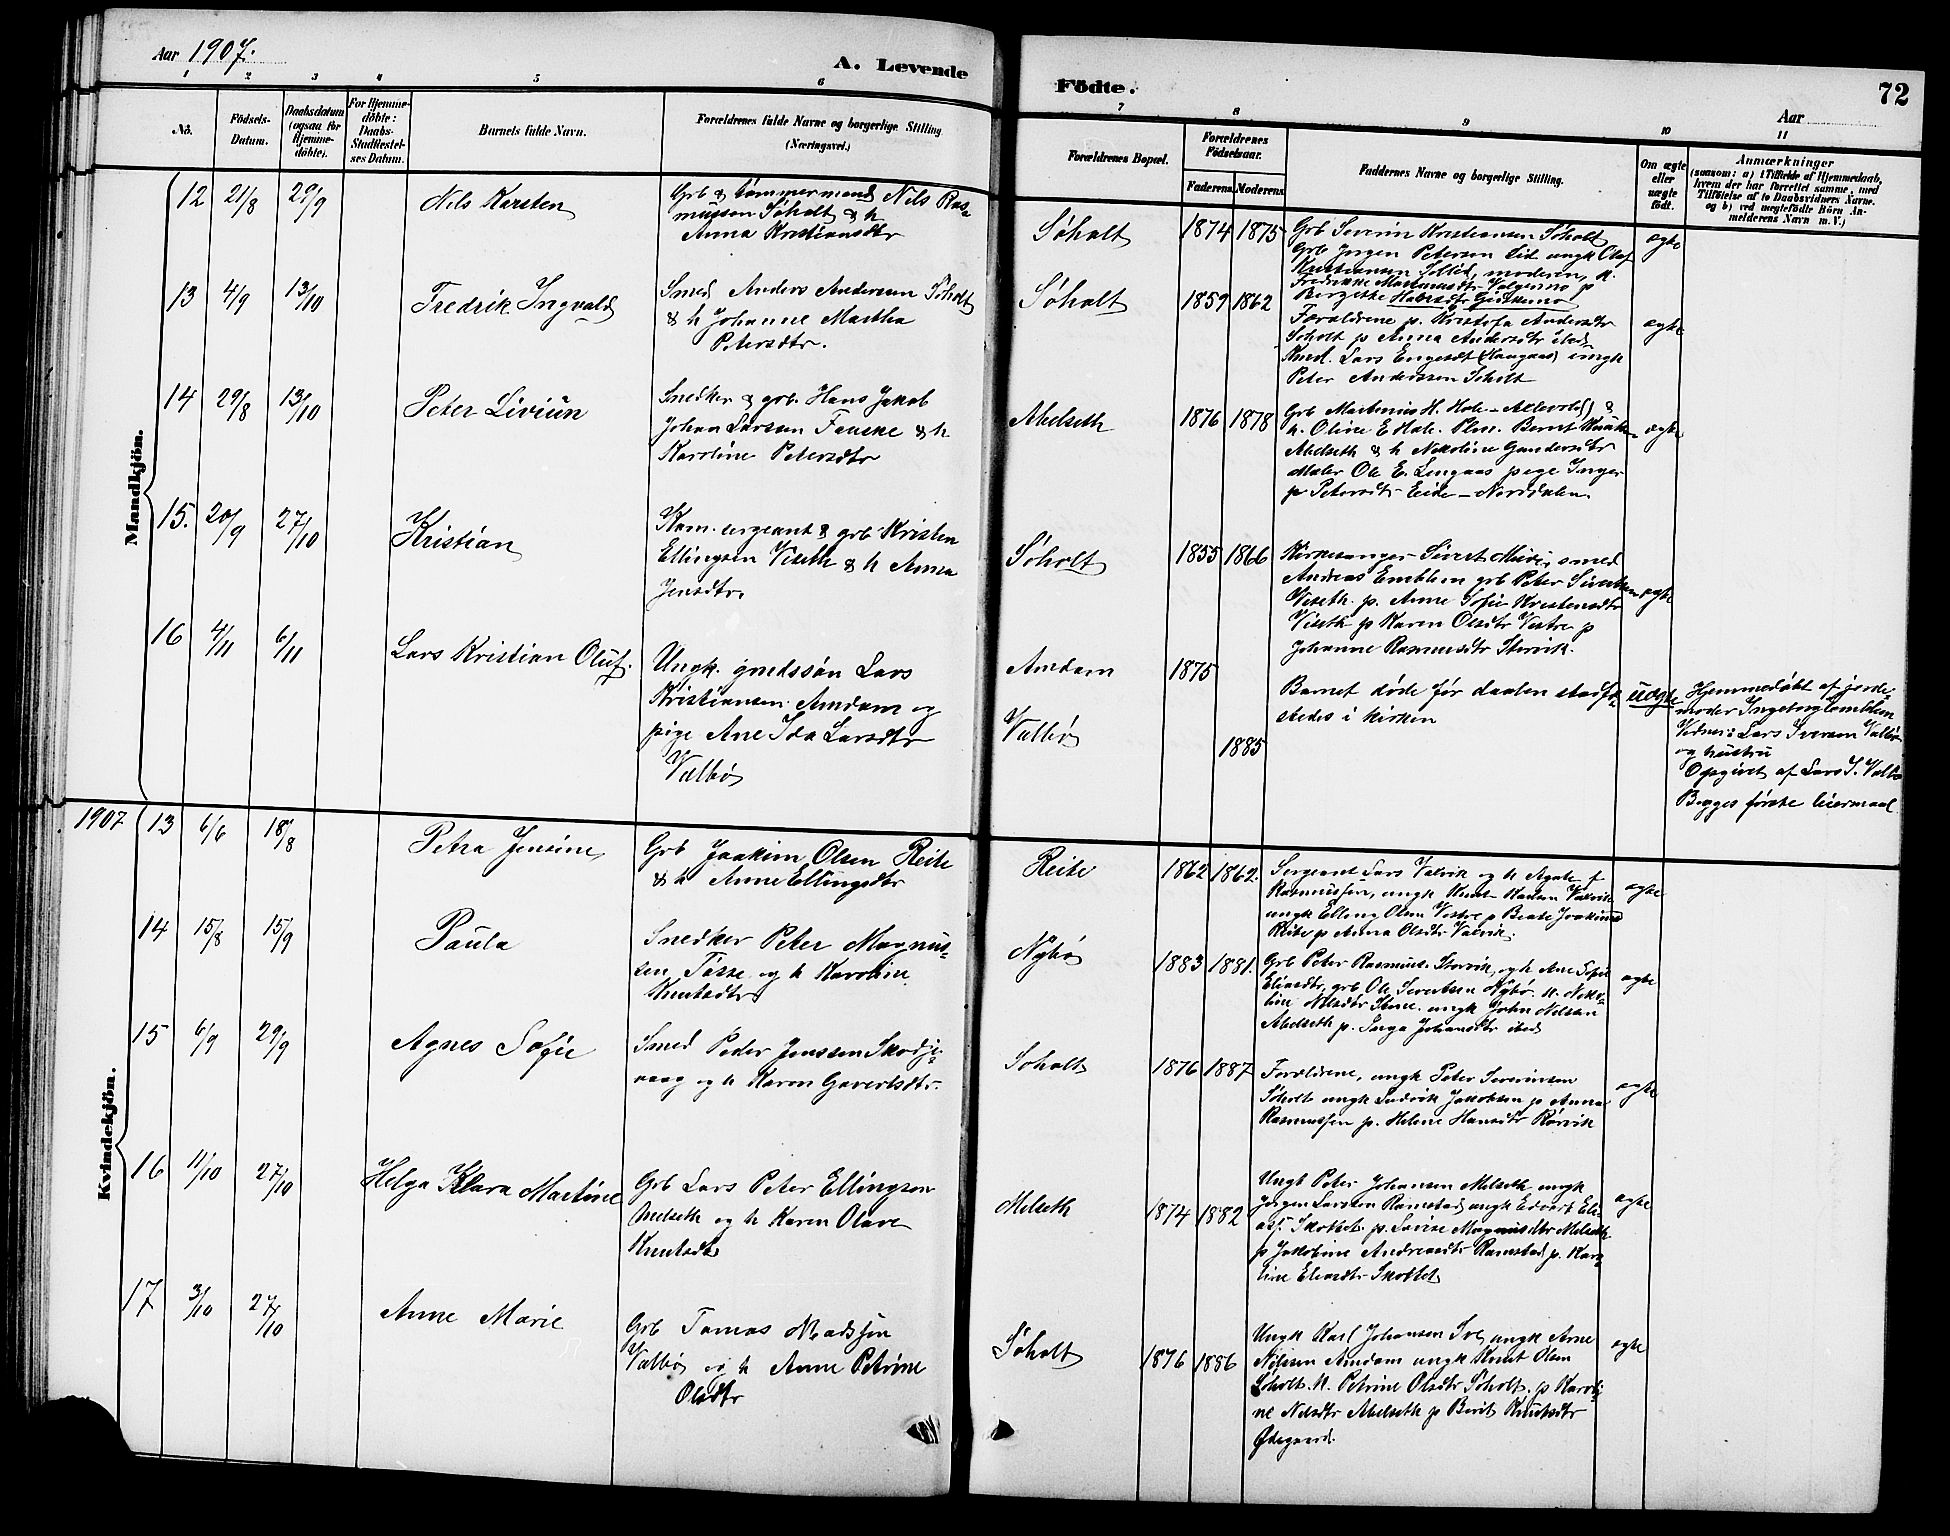 Aar 1907.
A. Levende
Födte.
Aar
72
1 2 3 4 5 6 7 8 9 10 11
No.
Födsels-Datum.
Daabsdatum (ogsaa for Hjemme-döbte).
For Hjemme-döbte: Daabs-Stadfæstel-ses Datum.
Barnets fulde Navn.
Forældrenes fulde Navne og borgerlige Stilling
(Næringsvei.)
Forældrenes Bopæl.
Forældrenes Födselsaar.
Faderens. Moderens.
Faddernes Navne og borgerlige Stilling.
Om ægte eller uægte födt.
Anmærkninger
(saasom: a) i Tilfælde af Hjemmedaab, hvem der har forrettet samme, med Tilföielse af to Daabsvidners Navne, og b) ved uægtefödte Börn An-melderens Navn m. V.)
Mandkjön.
12 21/8 29/9 Nils Karsten
Grb & tømmermand Nils Ras-
mussen Søholt & h
Anna Kristiansdtr
Søholt 1874 1875
Grb Severin Kristiansen Søholt
Grb Jørgen Petersen Lid ungk Olaf
Kristiansen Sollid, moderen, k.
Fredrikke Martinusdtr Valgermo p
Bergithe Halvsdtr Giskemo
ægte
13 4/9 13/10 Fredrik Ingvald
Smed Anders Andersen Søholt
& h Johanne Martha
Petersdtr.
Søholt 1859 1862
Forældrene p. Kristofa Andersdtr
Søholt p Anna Andersdtr ibed
Knud. Lars Engeset (Haugaas) ungk
Peter Anderssen Søholt
ægte
14 29/8 13/10 Peter Liviun
Snedker & grb. Hans Jakob
Johan Larssen Fauske & h
Karoline Petersdtr
Abelseth 1876 1878
Grb Martinus H. Hole &
h. Oline E Hole. Plm. Bernt
Abelseth & h Nikoline Gundersdtr
Maler Ole E. Lingaas pige Inger
p Petersdtr Eide - Norddalen.
ægte
15. 20/9 27/10 Kristian
Kom. sergeant & grb Kristen
Ellingsen Viseth & h Anna
Jensdtr.
Søholt 1855 1866
Kirkesanger Sivert Muri, smed
Andreas Emblem grb Peter Sivertsen
Viseth. p. Anne Sofie Kristensdtr
Viseth p Karen Olsdtr Vestre p
Johanne Rasmusdtr Storvik.
ægte
16 4/11 6/11 Lars Kristian Oluf.
Ungk. gmedssøn Lars
Kristiansen Amdam og
pige Ane Ida Larsdtr
Valbø
Amdam 1875
Valbø 1885
Barnet døde før daaben stadfæ-
stedes i kirken
uægte
Hjemmedøbt af jorde-
moder Ingeborg Emblem
Vidner: Lars Iversen Valbø
og hustru
Opgivet af Lars I. Valbø
Begges første leiermaal
1907
Kvindekjön.
13 6/6 18/8 Petra Jensine
Grb Joakim Olsen Reite
& h Anne Ellingsdtr
Reite 1862 1862.
Sergeant Lars Valvik og h Agate f
Rasmussen, ungk Knut Karlsen Valvik
ungk Elling Olsen Vestre p Beate Joakimsd
Reite p Anna Olsdtr Valvik.
ægte
14 15/8 15/9 Paula
Snedker Peter Magnus-
sen Tøsse og h Karoline
Knutsdtr
Nybø 1883 1881.
Grb Peter Rasmus. Storvik, og h Ane Sofie
Eliasdtr, grb Ole Sivertsen Nybø. k. Niko-
line Nilsdtr Stene. ungk John Nilsen
Abelseth p. Inga Johansdtr ibed
ægte
15 6/9 29/9 Agnes Sofie
Smed Peder Jenssen Skodje-
vaag og h Karen Gavertsdtr.
Søholt 1876 1887
Forældrene, ungk Peter Severinsen
Søholt ungk Ludvik Jakobsen p Anna
Rasmussen p. Helene Hansdtr Rørvik
ægte
16 11/10 27/10 Helga Klara Martine
Grb Lars Peter Ellingsen
Melseth og h Karen Olave
Knutsdtr
Melseth 1874 1882
Ungk Peter Johansen Melseth ungk
Jørgen Larssen Ramstad ungk Edvart Eli-
ass. Skottet p. Lavise Magnusdtr Melseth
p Jakobine Andreasdtr Ramstad p. Karo-
line Eliasdtr Skottet
ægte
17 3/10 27/10 Anne Marie
Grb Tomas Madssen
Valbø og h Anne Petrine
Olsdtr
Søholt 1876 1886
Ungk Karl Johansen Sve ungk Arne
Nilssen Amdam ungk Knut Olsen
Søholt. k. Petrine Olsdtr Søholt. p Karoli-
ne Nilsdtr Abelseth p Berit Knutsdtr
Ødegaard.
ægte